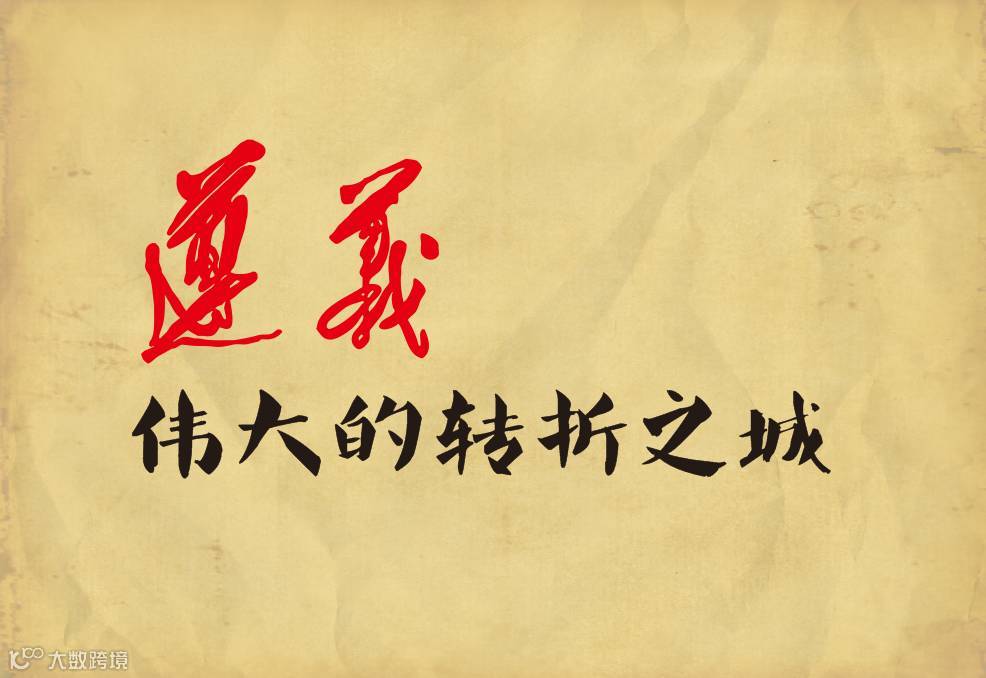 遵義
伟大的转折之城
大数跨境